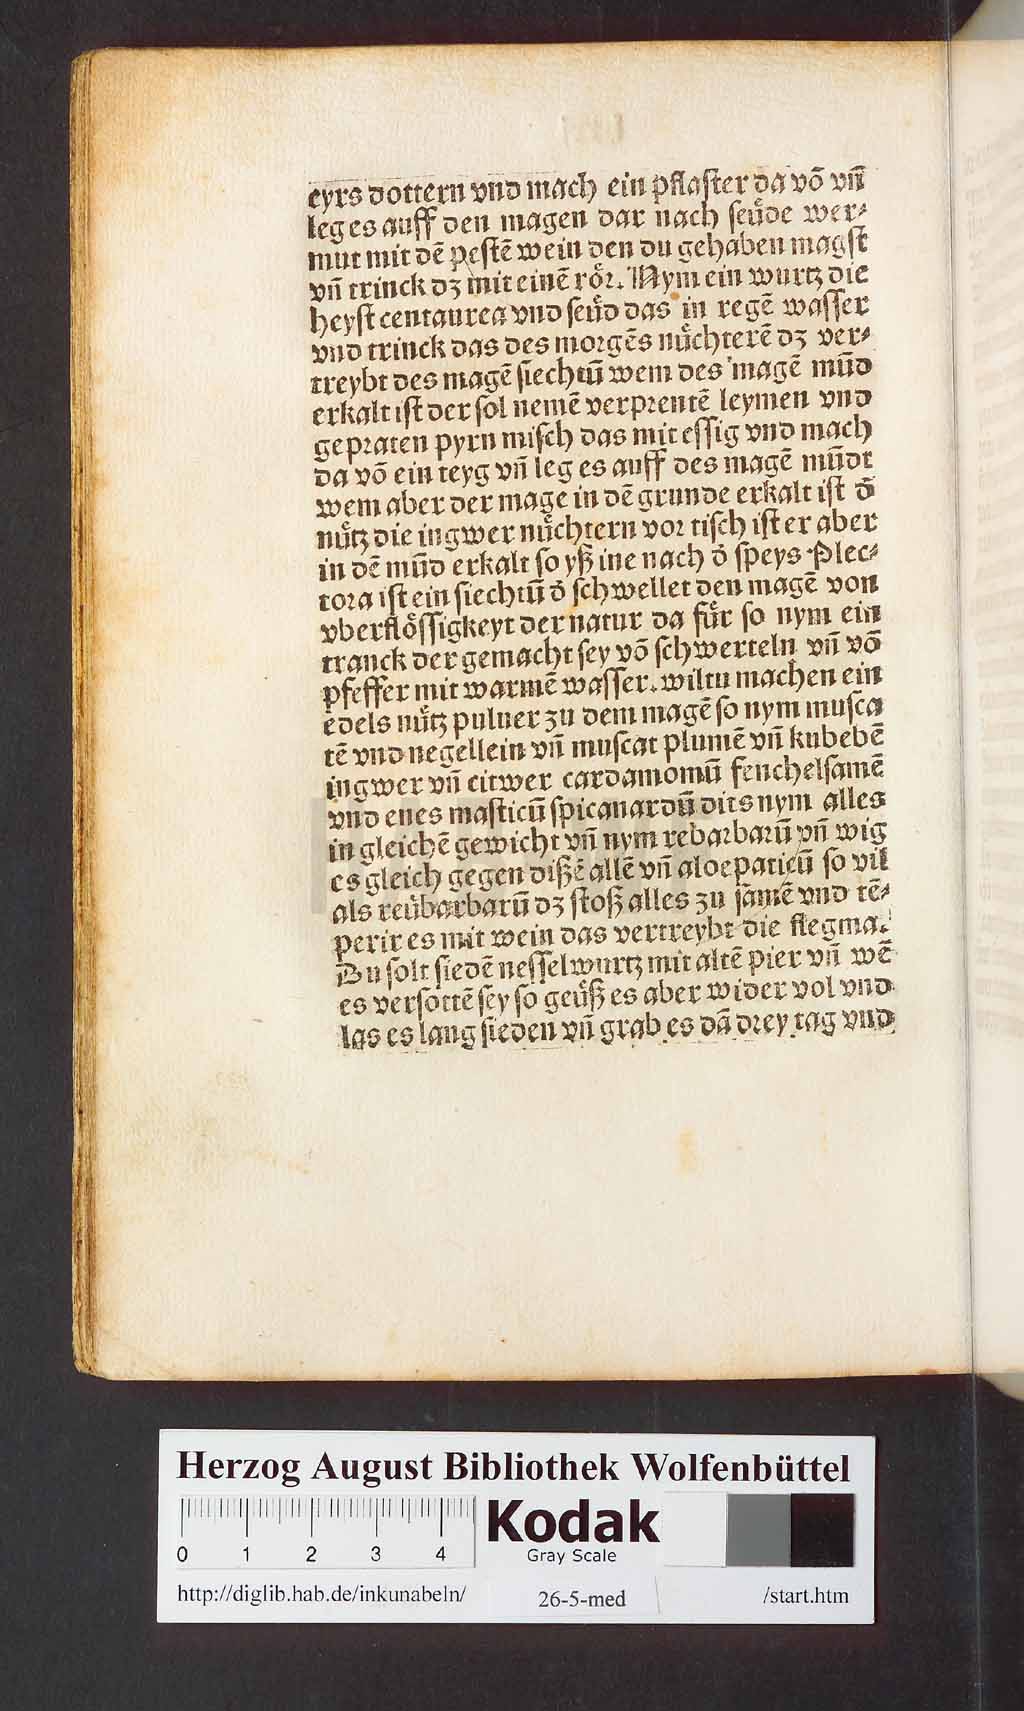 eyrs dottern vnd mach ein pflaſter da võ vñ
leg es auff den magen dar nach ſeuͤde wer⸗
mut mit dẽ peſtẽ wein den du gehaben magſt
vñ trinck dꝫ mit einẽ roͤr. Nym ein wurtz die
heyſt centaurea vnd ſeuͤd das in regẽ waſſer
vnd trinck das des morgẽs nuͤchterẽ dꝫ ver⸗
treybt des magẽ ſiechtũ wem des magẽ mũd
erkalt iſt der ſol nemẽ verprentẽ leymen vnd
gepraten pyrn miſch das mit eſſig vnd mach
da võ ein teyg vñ leg es auff des magẽ mũdt
wem aber der mage in dẽ grunde erkalt iſt d̕
nuͤtz die ingwer nuͤchtern vor tiſch iſt er aber
in dẽ mũd erkalt ſo yß ine nach d̕ ſpeys Plec⸗
tora iſt ein ſiechtũ d̕ ſchwellet den magẽ von
vberfloͤſſigkeyt der natur da fuͤr ſo nym ein
tranck der gemacht ſey võ ſchwerteln vñ võ
pfeffer mit warmẽ waſſer. wiltu machen ein
edels nuͤtz puluer zu dem magẽ ſo nym muſca
tẽ vnd negellein vñ muſcat plumẽ vñ kubebẽ
ingwer vñ citwer cardamomũ fenchelſamẽ
vnd enes maſticũ ſpicanardũ dits nym alles
in gleichẽ gewicht vñ nym rebarbarũ vñ wig
es gleich gegen dißẽ allẽ vñ aloepaticũ ſo vil
als reubarbarũ dꝫ ſtoß alles zu ſamẽ vnd tẽ⸗
perir es mit wein das vertreybt die flegma.
Du ſolt ſiedẽ neſſelwurtz mit altẽ pier vñ wẽ
es verſottẽ ſey ſo geuͤß es aber wider vol vnd
las es lang ſieden vñ grab es dã drey tag vnd
Herzog August Bibliothek Wolfenbüttel
0 1 2 3 4
Kodak
Gray Scale
http://diglib.hab.de/inkunabeln/ 26-5-med /start.htm